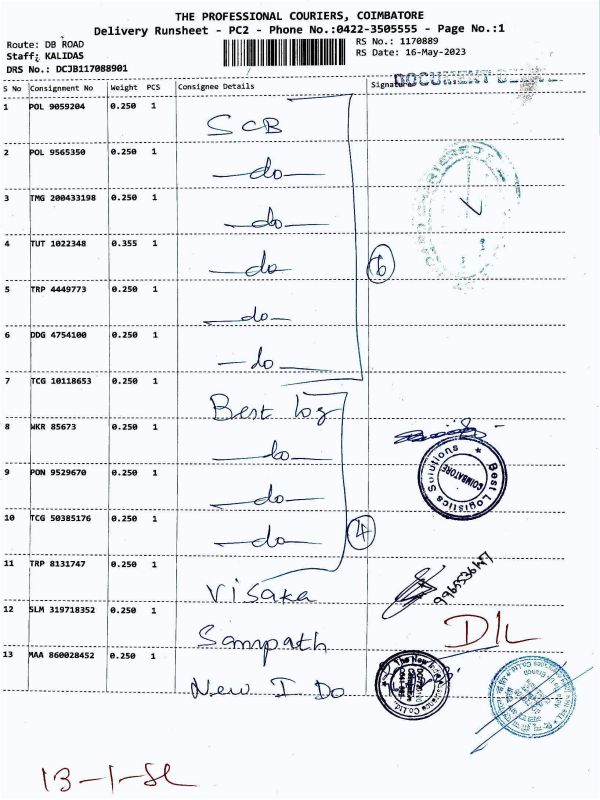 THE PROFESSIONAL COURIERS, COIMBATORE
Delivery Runsheet - PC2 - Phone No.:0422-3505555 - Page No.:1
Route: DB ROAD
RS No.: 1170889
Staff: KALIDAS
RS Date: 16-May-2023
DRS No.: DCJB117088901
DOCUMENT
S No Consignment No Weight PCS Consignee Details Signature
1 POL 9059204 0.250 1
SCB
2 POL 9565350 0.250 1
—do—
3 TMG 200433198 0.250 1
—do—
4 TUT 1022348 0.355 1
—do— 6
5 TRP 4449773 0.250 1
—do—
6 DDG 4754100 0.250 1
—do—
7 TCG 10118653 0.250 1
Best log
8 WKR 85673 0.250 1
—do—
Best Logistics Solutions
COIMBATORE
9 PON 9529670 0.250 1
—do—
10 TCG 50385176 0.250 1
—do— 4
11 TRP 8131747 0.250 1
Visaka
12 SLM 319718352 0.250 1
Sampath
D/L
13 MAA 860028452 0.250 1
The New India
New I Do
13-1-SL